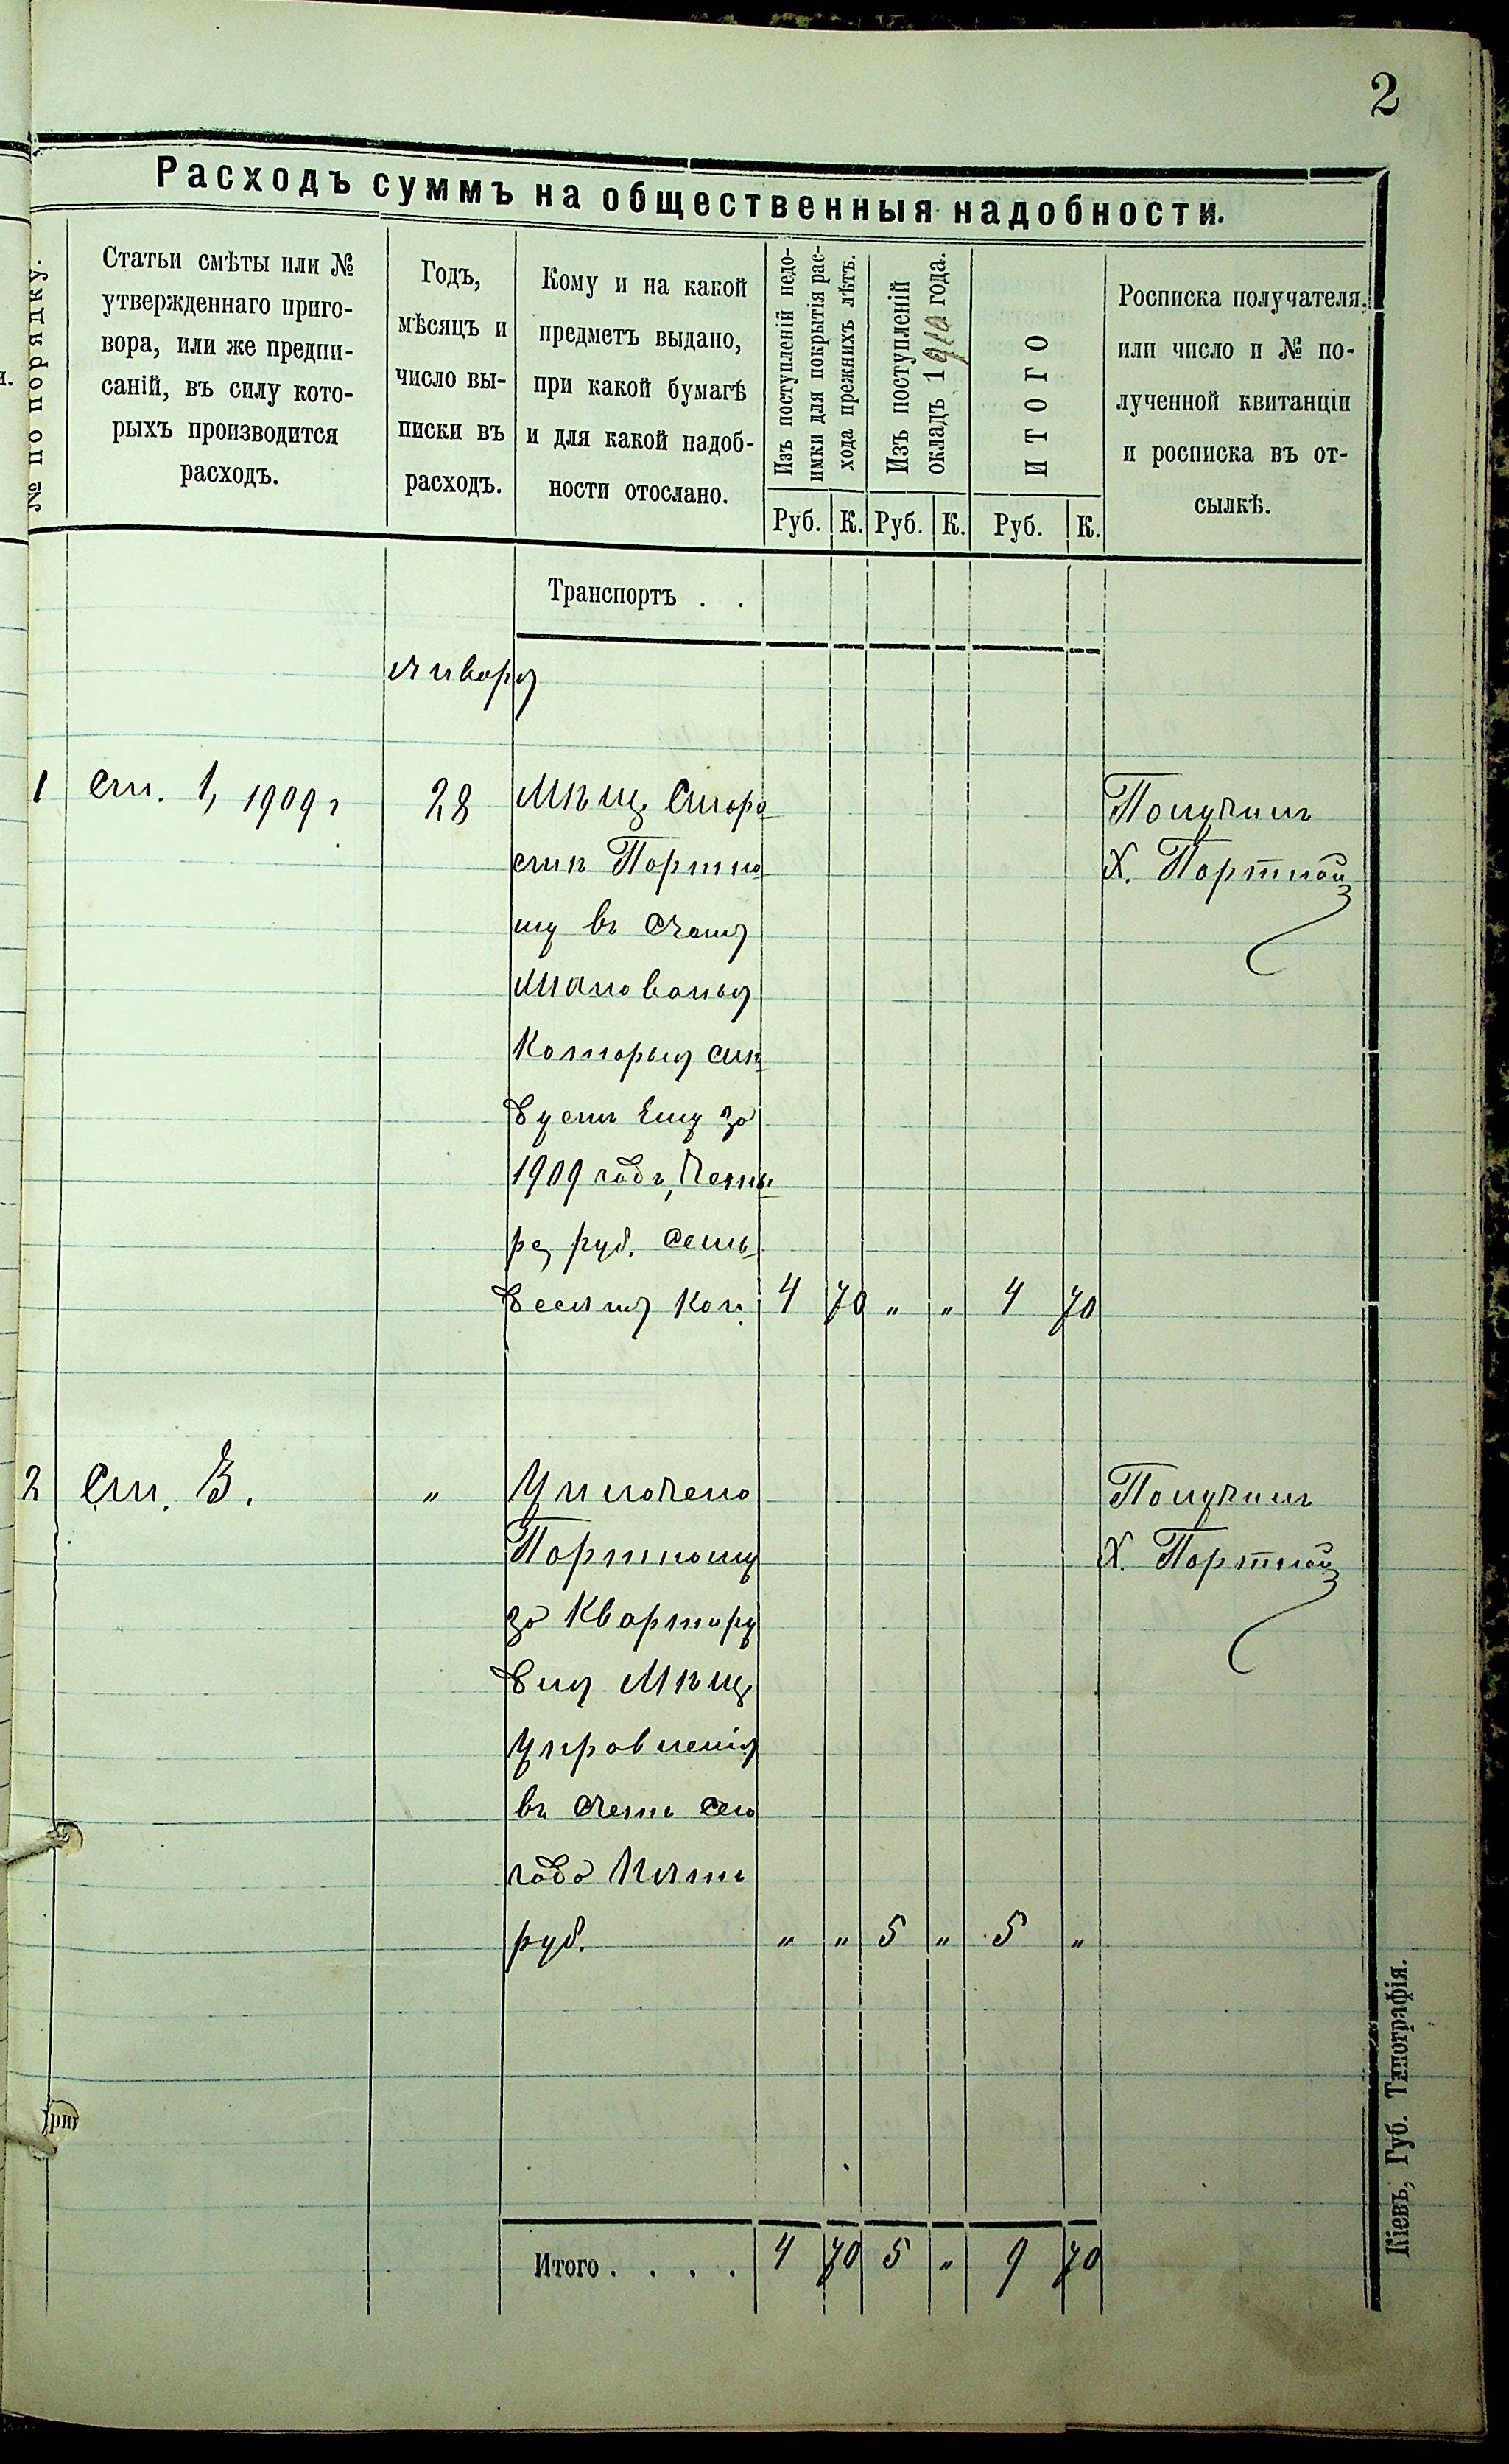 2
Расходъ суммъ на общественныя надобности.
№ по порядку.
Статьи смѣты или №
утвержденнаго приго-
вора, или же предпи-
саній, въ силу кото-
рыхъ производится
расходъ.
Годъ,
мѣсяцъ и
число вы-
писки въ
расходъ.
Кому и на какой
предметъ выдано,
при какой бумагѣ
и для какой надоб-
ности отослано.
Изъ поступленій недо-
имки для покрытія рас-
хода прежнихъ лѣтъ.
Изъ поступленій
окладъ 1910 года.
ИТОГО
Росписка получателя.
или число и № по-
лученной квитанціи
и росписка въ от-
сылкѣ.
Руб. К. Руб. К. Руб. К.
Транспортъ . .
Января
1 Ст. 1, 1909 г 28 Мѣщ. Старо
стѣ Портно
му въ счетъ
жалованья
Которыя слѣ
дуетъ Ему за
1909 годъ, Четы
ре руб. семь
десятъ Коп. 4 70 „ „ 4 70
Получилъ
Х. Портной
2 Ст. 3. „ Уплочено
Портному
за Квартиру
для Мѣщ.
Управленія
въ счетъ сего
года Пять
руб. „ „ 5 „ 5 „
Получилъ
Х. Портной
Итого . . . . 4 70 5 „ 9 70
Кіевъ, Губ. Типографія.